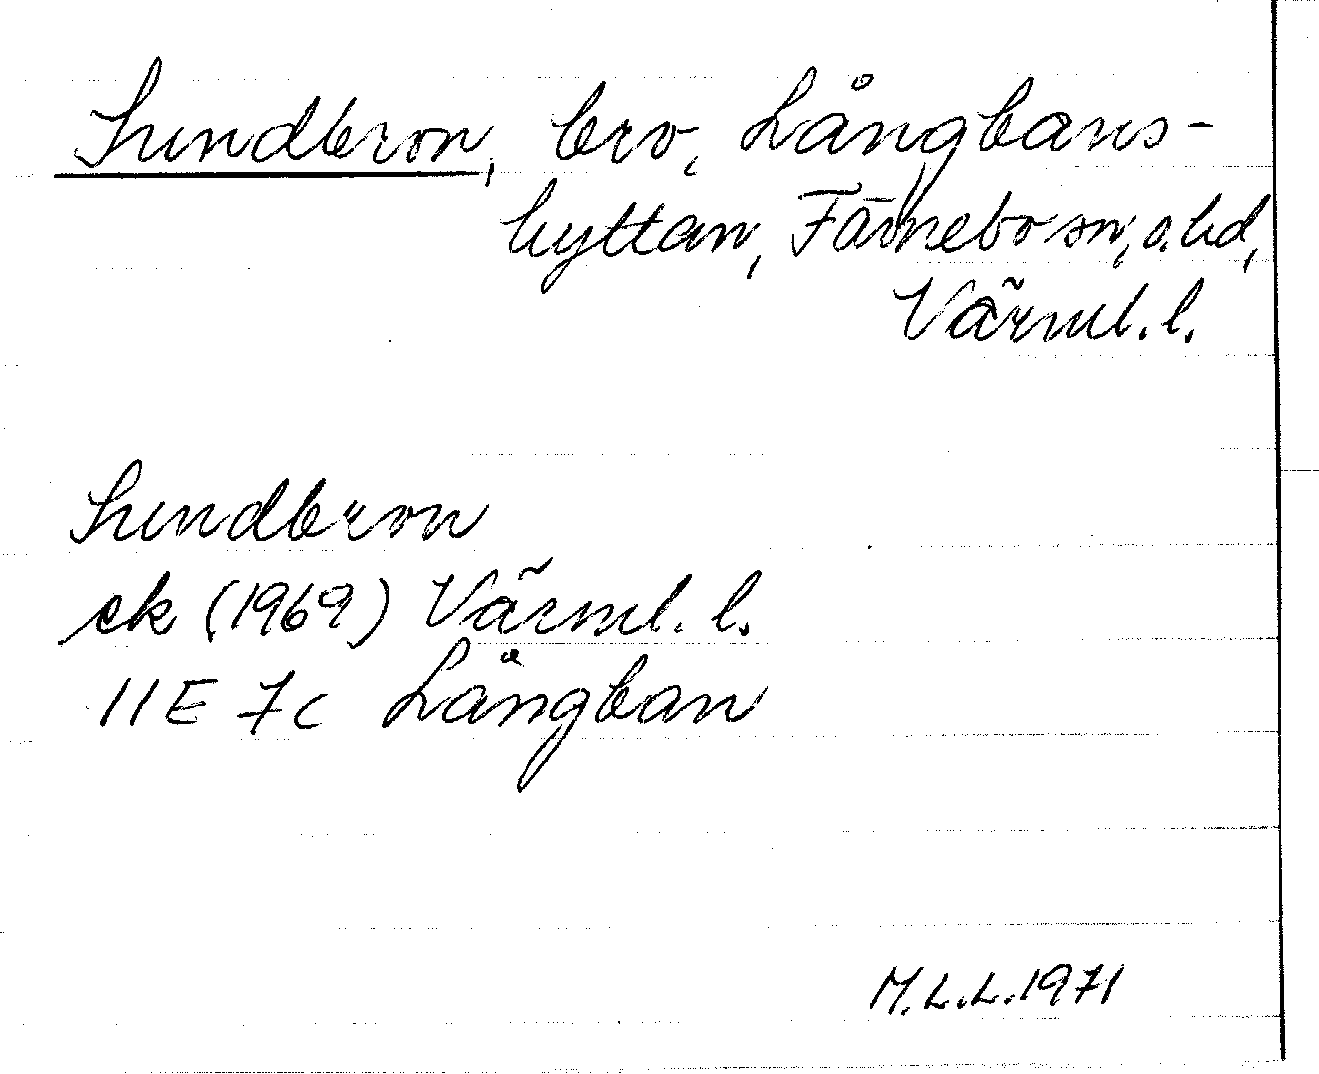 Sundbron, bro, Långbans-
hyttan, Färnebo sn, o. hd,
Värml. l.
Sundbron
ek (1969) Värml. l.
11E 7c Långban
M.L.L. 1971